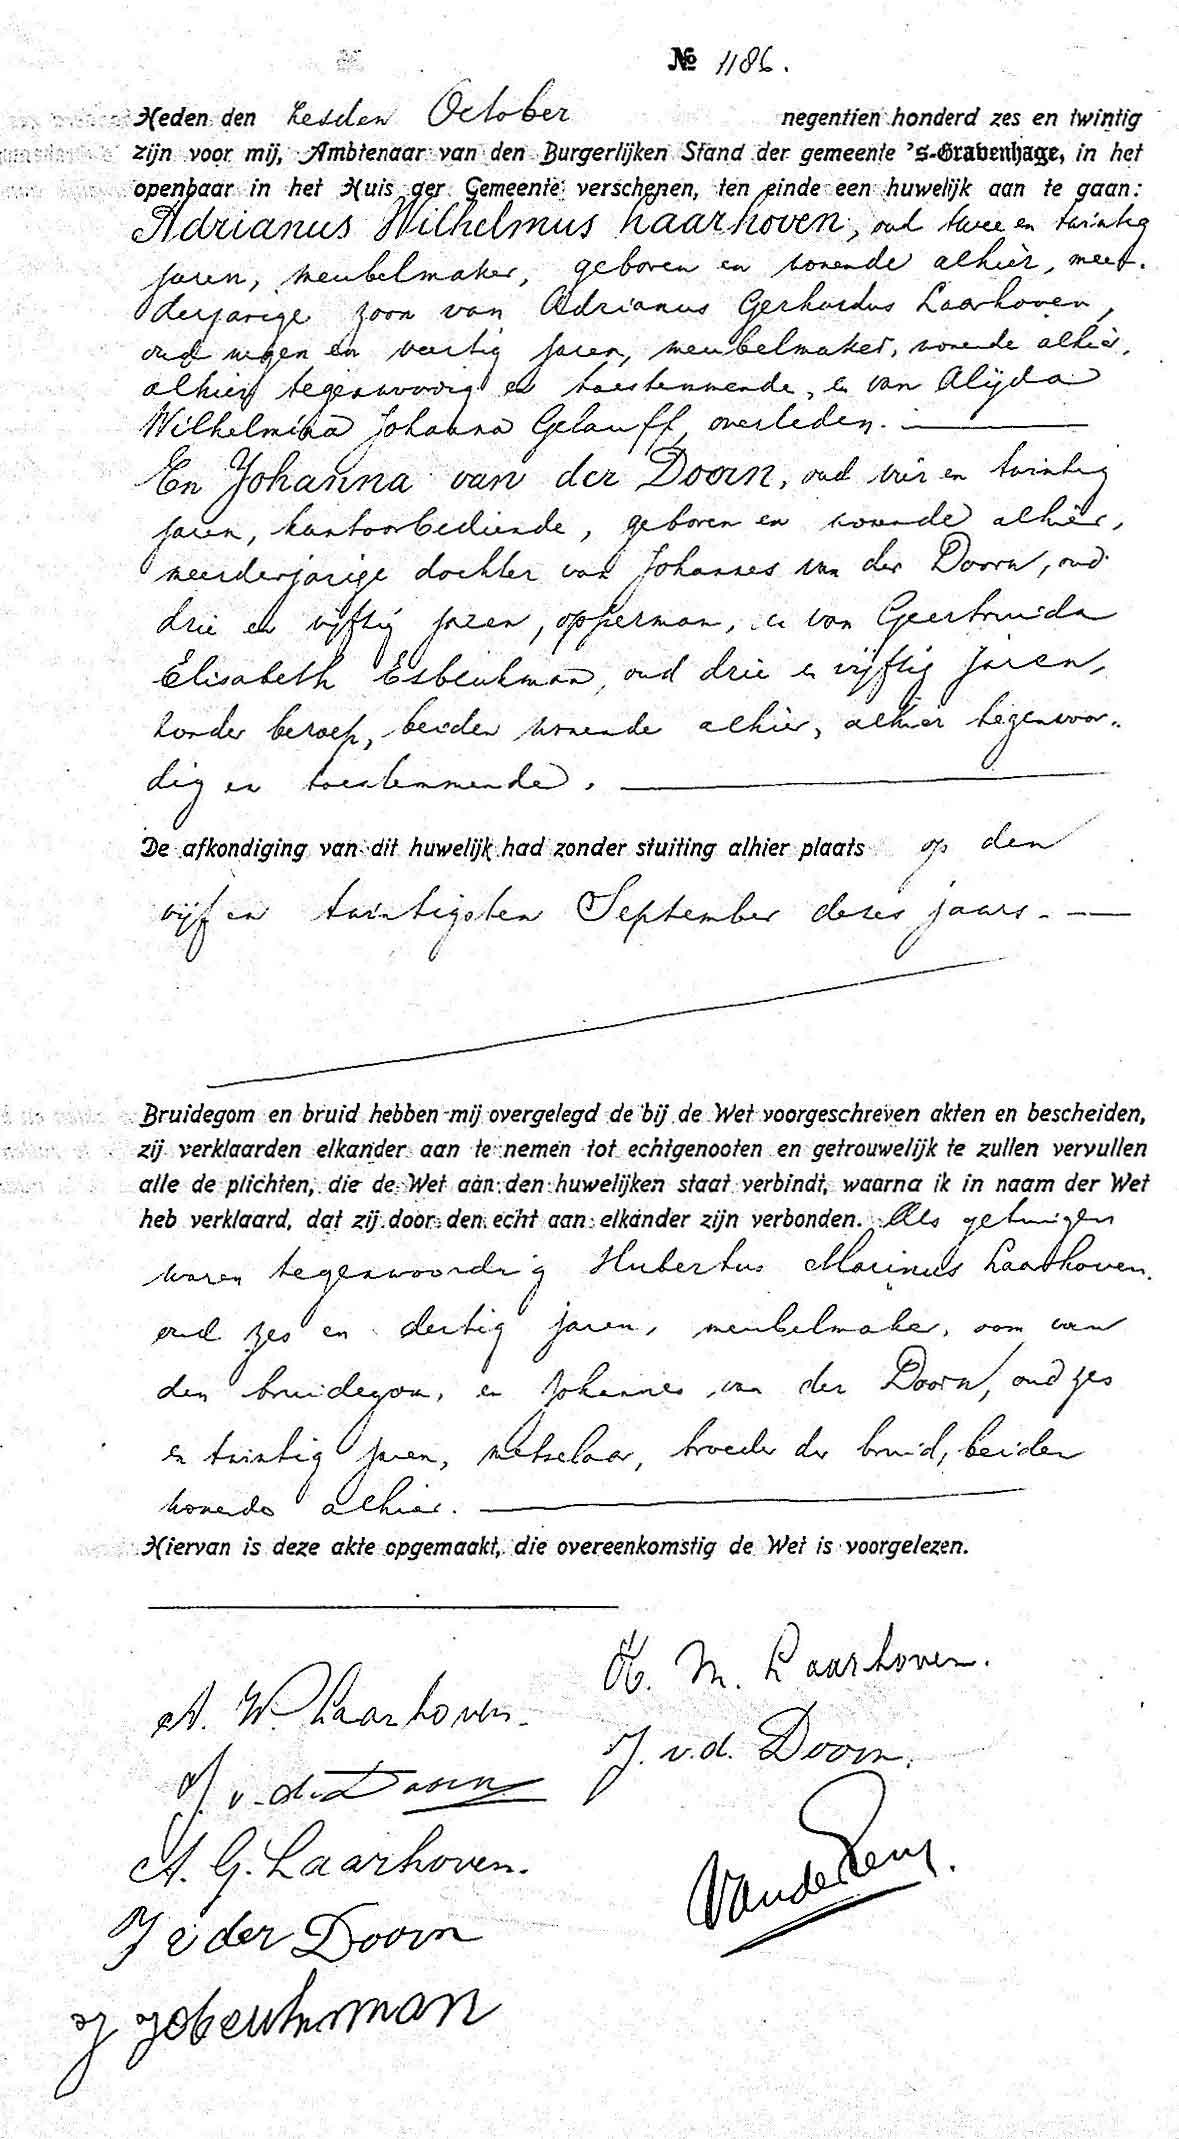 № 1186.
Heden den zesden October negentien honderd zes en twintig
zijn voor mij, Ambtenaar van den Burgerlijken Stand der gemeente 's-Gravenhage, in het
openbaar in het Huis der Gemeente verschenen, ten einde een huwelijk aan te gaan:
Adrianus Wilhelmus Laarhoven, oud twee en twintig
jaren, meubelmaker, geboren en wonende alhier, meer-
derjarige zoon van Adrianus Gerhardus Laarhoven,
oud negen en veertig jaren, meubelmaker, wonende alhier,
alhier tegenwoordig en toestemmende, en van Alijda
Wilhelmina Johanna Gelauff, overleden.
En Johanna van der Doorn, oud vier en twintig
jaren, kantoorbediende, geboren en wonende alhier,
meerderjarige dochter van Johannes van der Doorn, oud
drie en vijftig jaren, opperman, en van Geertruida
Elisabeth Esbeukman, oud drie en vijftig jaren,
zonder beroep, beiden wonende alhier, alhier tegenwoor-
dig en toestemmende.
De afkondiging van dit huwelijk had zonder stuiting alhier plaats op den
vijf en twintigsten September dezes jaars.
Bruidegom en bruid hebben mij overgelegd de bij de Wet voorgeschreven akten en bescheiden,
zij verklaarden elkander aan te nemen tot echtgenooten en getrouwelijk te zullen vervullen
alle de plichten, die de Wet aan den huwelijken staat verbindt, waarna ik in naam der Wet
heb verklaard, dat zij door den echt aan elkander zijn verbonden. Als getuigen
waren tegenwoordig Hubertus Marinus Laarhoven,
oud zes en dertig jaren, meubelmaker, oom van
den bruidegom, en Johannes van der Doorn, oud zes
en twintig jaren, metselaar, broeder der bruid, beiden
wonende alhier.
Hiervan is deze akte opgemaakt, die overeenkomstig de Wet is voorgelezen.
H. M. Laarhoven.
A. W. Laarhoven.
J. v.d. Doorn.
J. v. d. Doorn
A. G. Laarhoven.
J v der Doorn